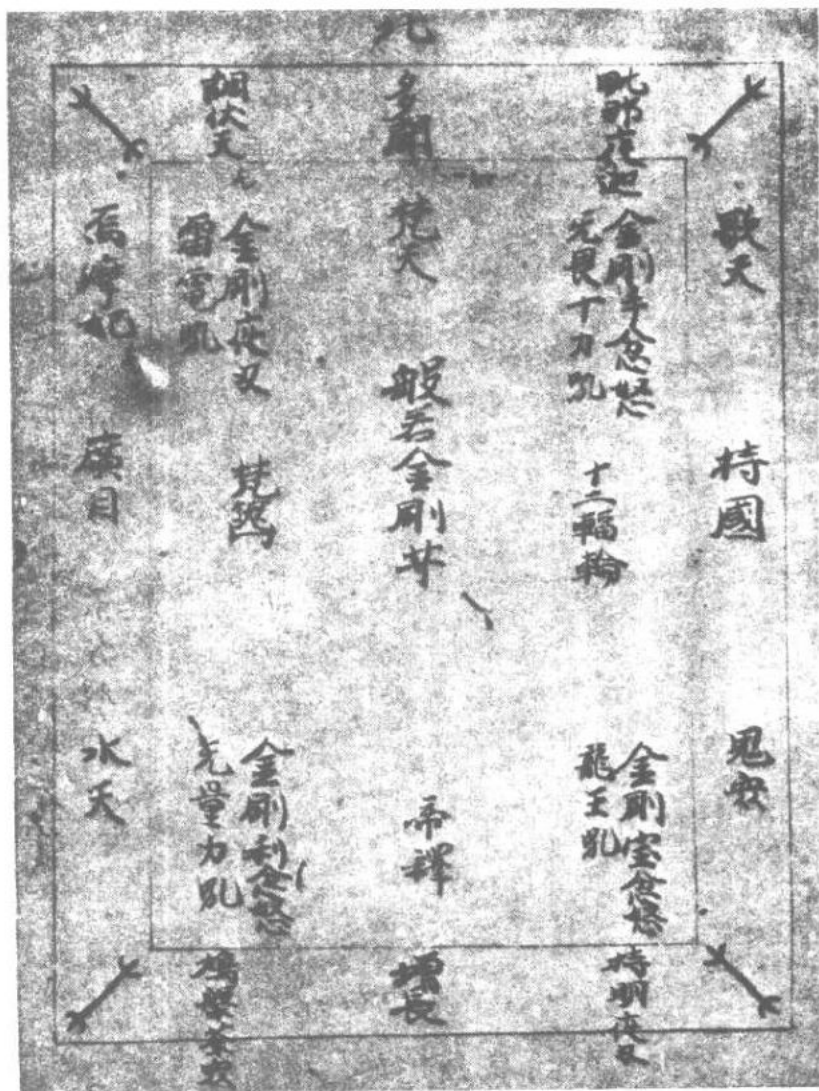 歌天
持國
毗那夜迦
金剛手忿怒
无畏十力吼
十二輻輪
金剛宝忿怒
龍王吼
持明夜叉
北
多聞
梵天
般若金剛𦬇
帝釋
增長
金剛夜叉
雷電吼
金剛利忿怒
无量力吼
鳩槃荼
烏摩妃
廣目
水天